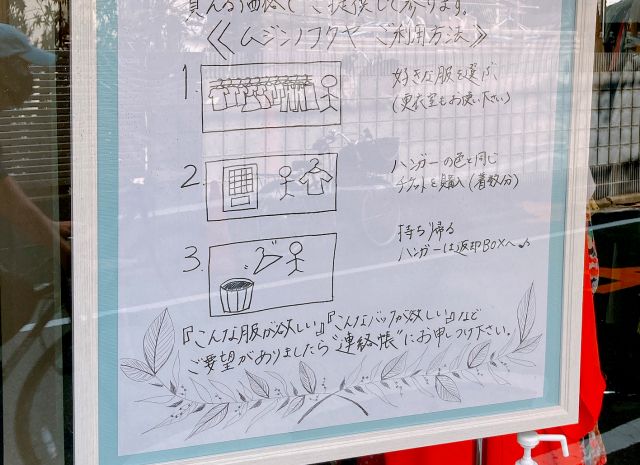 買える価格でご提供しております。
《ムジンノフクヤ ご利用方法》
1.
好きな服を選ぶ
(更衣室もお使い下さい)
2.
ハンガーの色と同じ
チケットを購入(着数分)
3.
持ち帰る
ハンガーは返却BOXへ♪
『こんな服が欲しい』『こんなバックが欲しい』など
ご要望がありましたら"連絡帳"にお申しつけ下さい。